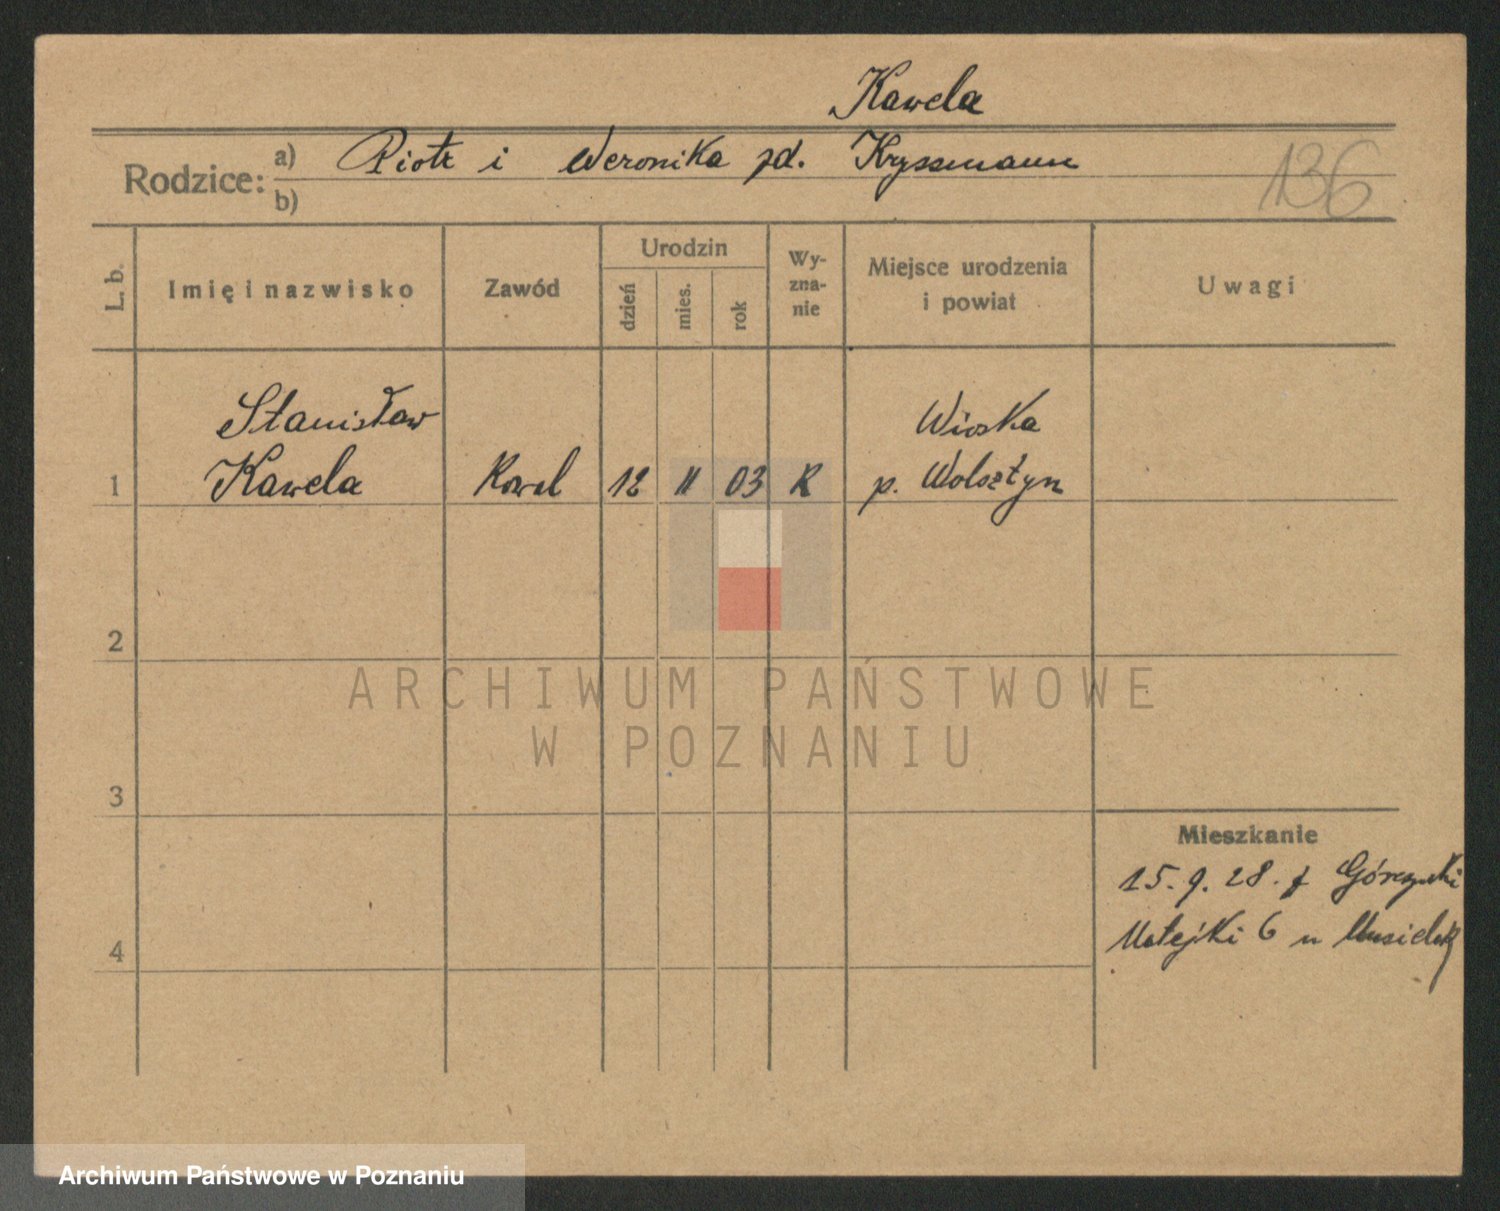 Kawela
Rodzice: a) Piotr i Weronika zd. Kryssmann
b)
136
L. b. Imię i nazwisko Zawód Urodzin dzień mies. rok Wy-zna-nie Miejsce urodzenia i powiat Uwagi
Stanisław Wioska
1 Kawela Kowal 12 II 03 R p. Wolsztyn
2
ARCHIWUM PAŃSTWOWE
W POZNANIU
3
Mieszkanie
15.9.28. f Górczynski
4 Matejki 6 u Musielak
Archiwum Państwowe w Poznaniu